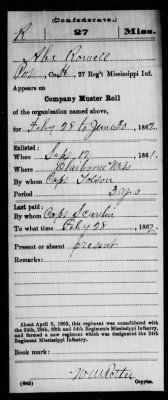 (Confederate.)
R 27 Miss.
Abe Rowell
Pvt, Co. K, 27 Reg't Mississippi Inf.
Appears on
Company Muster Roll
of the organization named above,
for Feby 28 to June 30, 1862.
Enlisted:
When Sept 12, 1861.
Where
By whom Capt
Period 3 yrs
Last paid:
By whom Capt
To what time Feby 28, 1862.
Present or absent present
Remarks:
About April 9, 1865, this regiment was consolidated with
the 24th, 29th, 30th and 34th Regiments Mississippi Infantry,
and formed a new regiment which was designated the 24th
Regiment Mississippi Infantry.
Book mark:
(642)
Copyist.